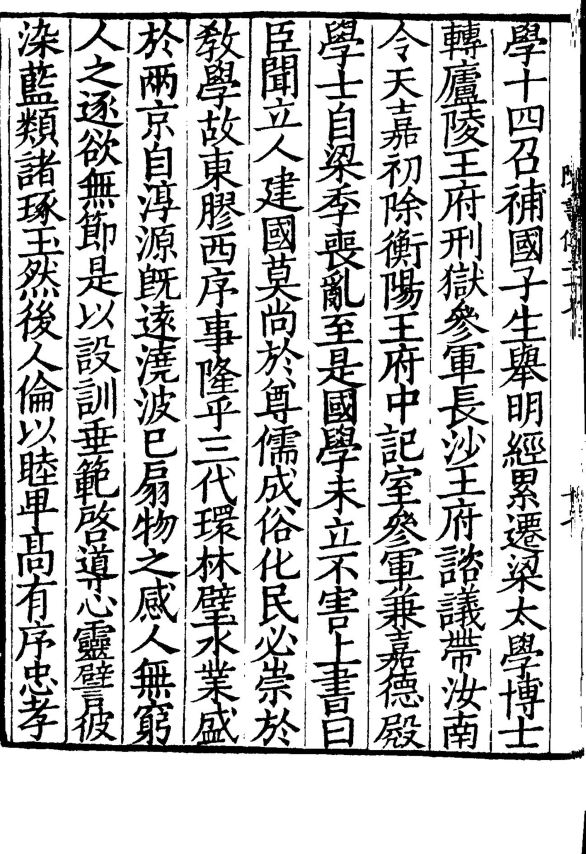 學十四召補國子生舉明經累遷梁太學博士
轉廬陵王府刑獄參軍長沙王府諮議帶汝南
令天嘉初除衡陽王府中記室參軍兼嘉德殿
學士自梁季喪亂至是國學未立不害上書曰
臣聞立人建國莫尚於尊儒成俗化民必崇於
敎學故東膠西序事隆乎三代環林璧水業盛
於兩京自淳源旣遠澆波已扇物之感人無窮
人之逐欲無節是以設訓垂範啓導心靈譬彼
染藍類諸琢玉然後人倫以睦卑髙有序忠孝